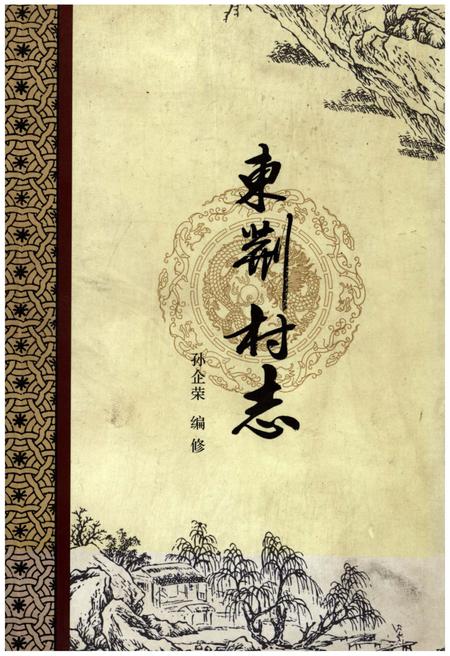 東荆村志
孙企荣 编修